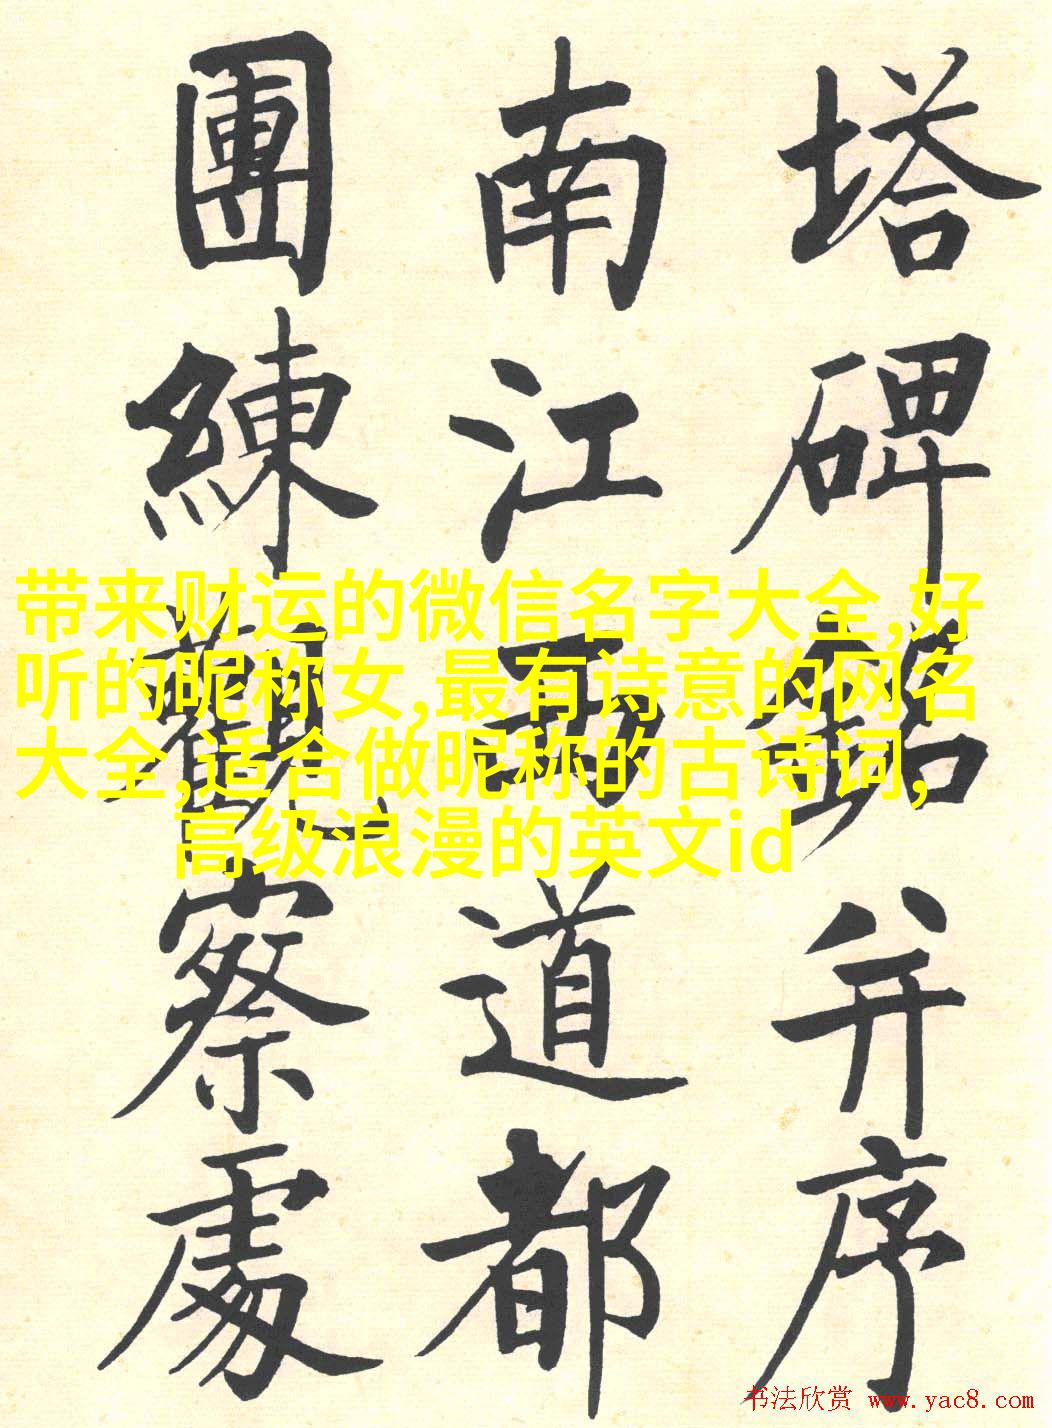 塔碑銘并序
南江西道都
團練觀察處
带来财运的微信名字大全,好
听的昵称女,最有诗意的网名
大全,适合做昵称的古诗词,
高级浪漫的英文id
书法欣赏 www.yac8.com